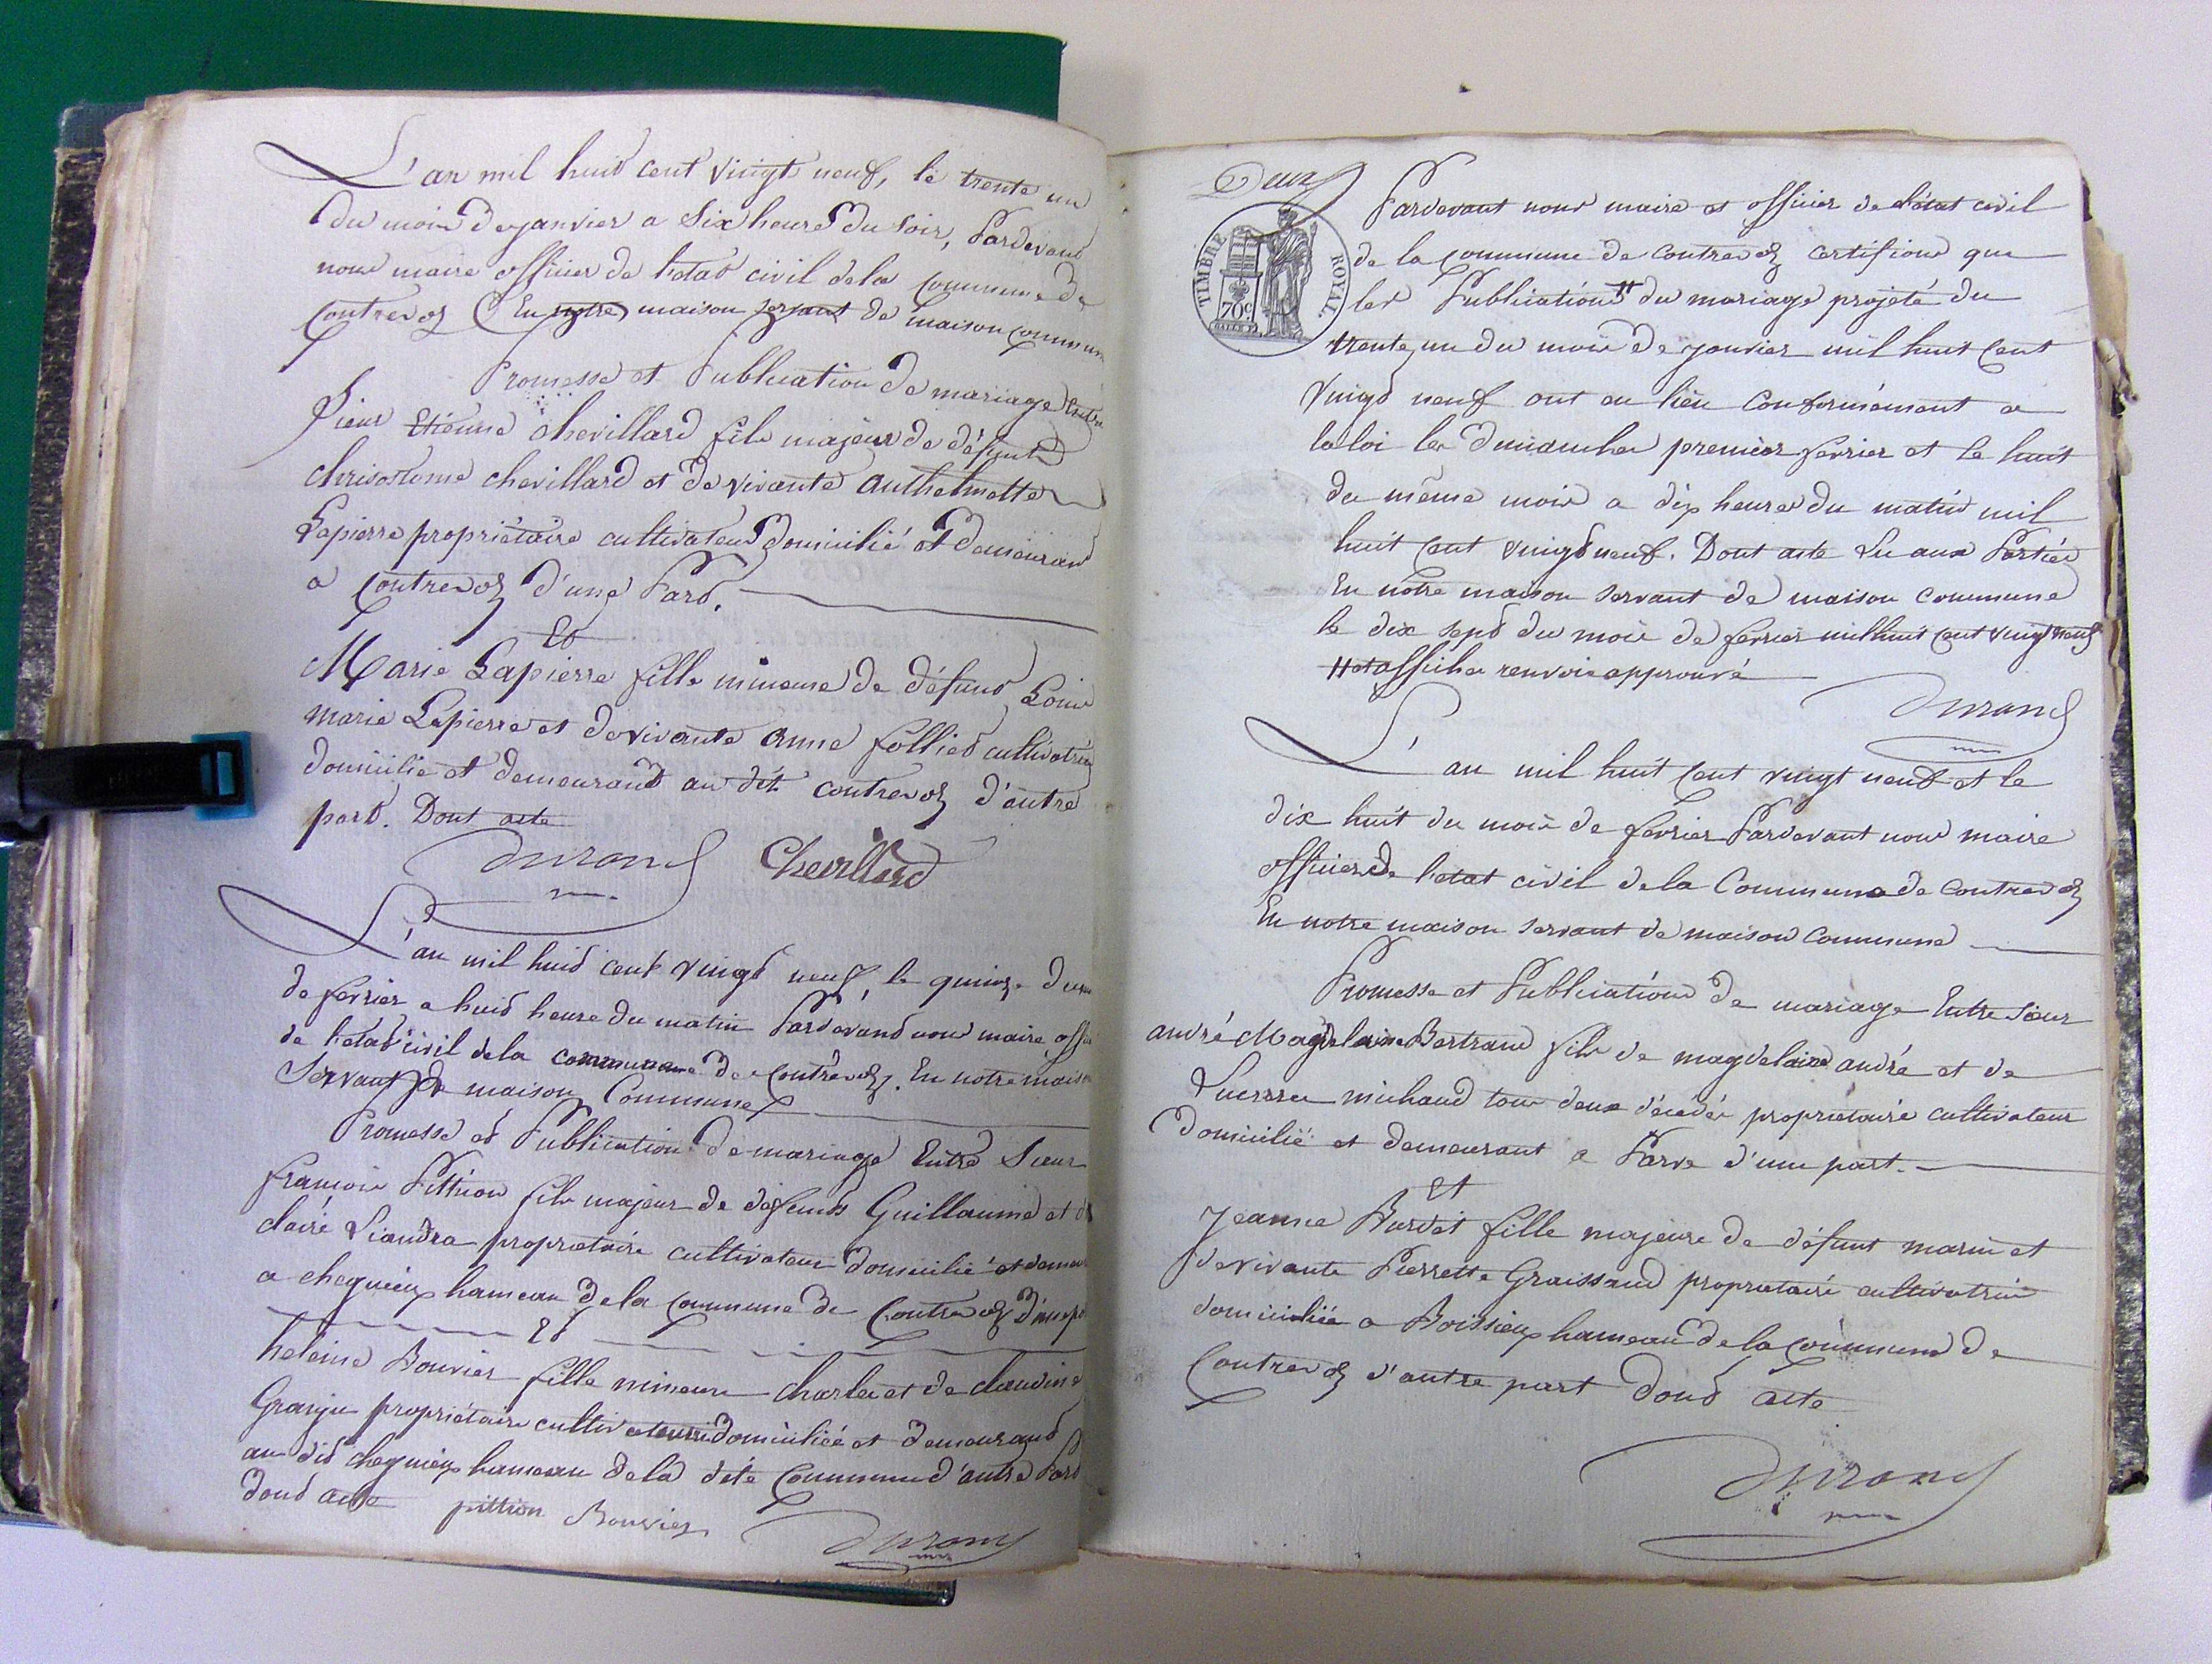 L'an mil huit cent vingt neuf, le trente un
du mois de janvier a six heures du soir, Pardevant
nous maire officier de l'etat civil de la commune de
Contrevoz En notre maison servant de maison commune
Promesse et Publication de mariage Entre
Sieur Etienne Chevillard fils majeur de défunt
Chrisostome Chevillard et de vivante Anthelmette
Lapierre propriétaire cultivateur domicilié et demeurant
a Contrevoz d'une Part.
Et
Marie Lapierre fille mineure de défunt Louis
Marie Lapierre et de vivante Anne Folliet cultivatrice
domicilie et demeurant au dit Contrevoz d'autre
part. Dont acte
Durand Chevillard
L'an mil huit cent vingt neuf, le quinze du
de fevrier a huit heure du matin Pardevant nous maire offi
de l'etat civil de la commune de Contrevoz. En notre maison
Servant de maison Commune
Promesse et Publication de mariage Entre Sieur
francois Pittion fils majeur de défunts Guillaume et d
claire Liandra propriétaire cultivateur domicilié et demeu
a chegnieu hameau de la commune de Contrevoz d'une p
Et
heleine Bouvier fille mineure charles et de claudine
Granju propriétaire cultivateurs domiciliée et demeurant
au dit chegnieu hameau de la dite Commune d'autre Part
dont acte pittion Bouvier Durand
Deux
TIMBRE ROYAL
70c.
Pardevant nous maire et officier de l'état civil
de la commune de Contrevoz certifions que
les Publications # du mariage projeté du
trente un du mois de janvier mil huit cent
vingt neuf ont eu lieu conformément a
la loi les dimanches premier fevrier et le huit
du même mois a dix heures du matin mil
huit cent vingt neuf. Dont acte Lu aux Parties
En notre maison servant de maison commune
le dix sept du mois de fevrier mil huit cent vingt neuf
# et affiches renvoie approuvé
Durand
L'an mil huit cent vingt neuf et le
dix huit du mois de fevrier Pardevant nous maire
officier de l'état civil de la Commune de Contrevoz
En notre maison servant de maison commune
Promesse et Publications de mariage Entre Sieur
andré Magdelaine Bertrand fils de magdelaine andré et de
michaud tous deux décédés propriétaire cultivateur
domicilié et demeurant a Parve d'une part.
Et
Jeanne Burdet fille majeure de défunt marin et
de vivante Pierrette Graissaud propriétaire cultivatrice
domiciliée a Boissieu hameau de la commune de
Contrevoz d'autre part dont acte
Durand